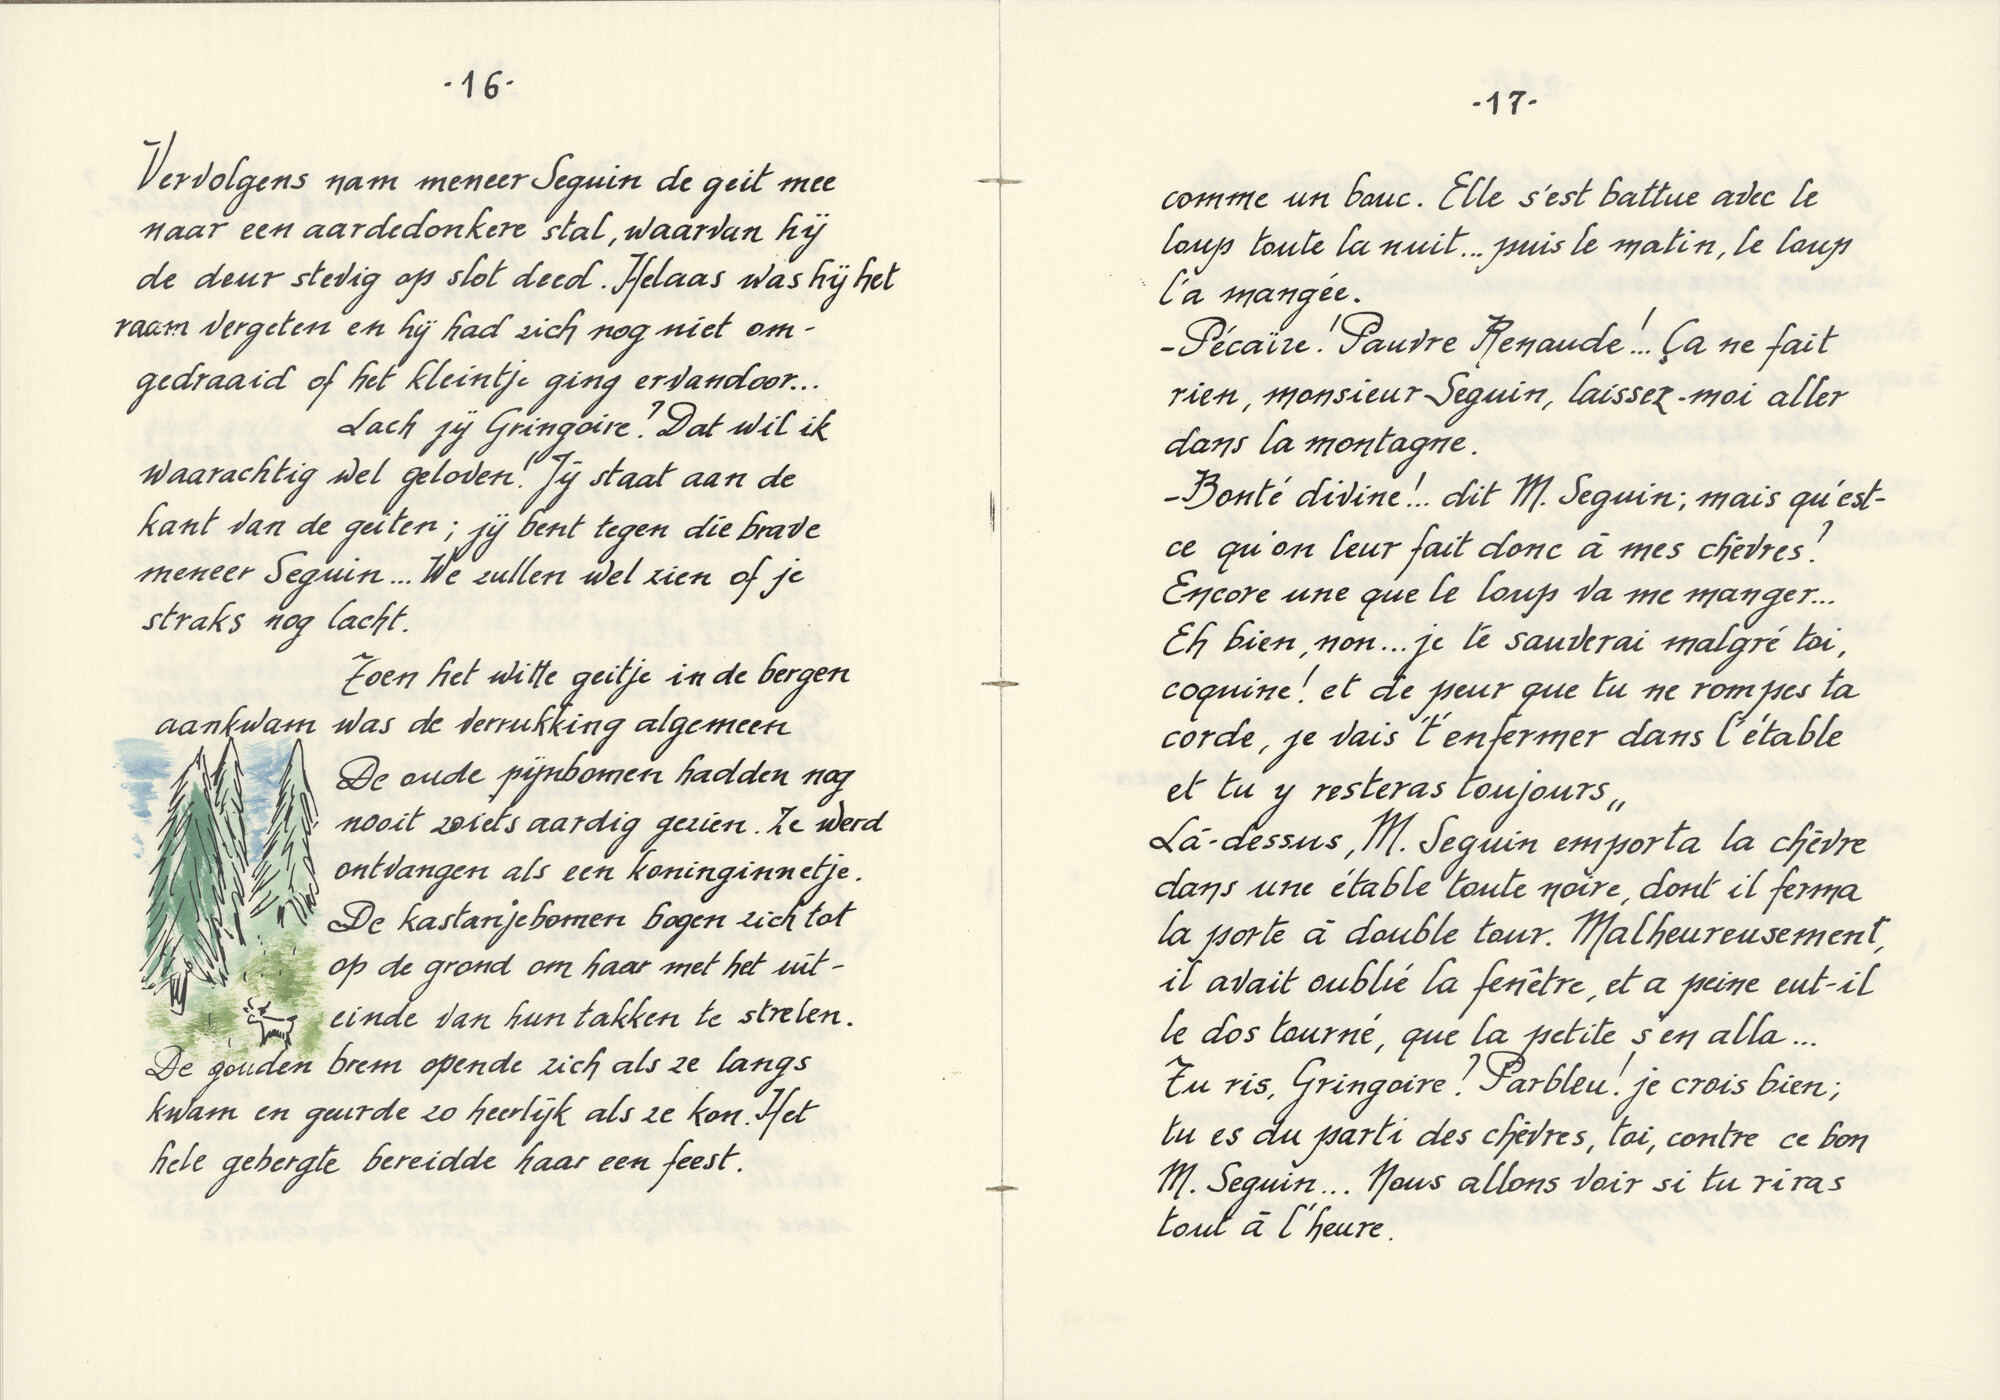 -16-
Vervolgens nam meneer Seguin de geit mee
naar een aardedonkere stal, waarvan hij
de deur stevig op slot deed. Helaas was hij het
raam vergeten en hij had zich nog niet om-
gedraaid of het kleintje ging ervandoor...
Lach jij Gringoire? Dat wil ik
waarachtig wel geloven! Jij staat aan de
kant van de geiten; jij bent tegen die brave
meneer Seguin... We zullen wel zien of je
straks nog lacht.
Toen het witte geitje in de bergen
aankwam was de verrukking algemeen
De oude pijnbomen hadden nog
nooit zoiets aardig gezien. Ze werd
ontvangen als een koninginnetje.
De kastanjebomen bogen zich tot
op de grond om haar met het uit-
einde van hun takken te strelen.
De gouden brem opende zich als ze langs
kwam en geurde zo heerlijk als ze kon. Het
hele gebergte bereidde haar een feest.
-17-
comme un bouc. Elle s'est battue avec le
loup toute la nuit... puis le matin, le loup
l'a mangée.
-Pécaïre! Pauvre Renaude!... Ça ne fait
rien, monsieur Seguin, laissez-moi aller
dans la montagne.
-Bonté divine!... dit M. Seguin; mais qu'est-
ce qu'on leur fait donc à mes chèvres?
Encore une que le loup va me manger...
Eh bien, non... je te sauverai malgré toi,
coquine! et de peur que tu ne rompes ta
corde, je vais t'enfermer dans l'étable
et tu y resteras toujours„
Là-dessus, M. Seguin emporta la chèvre
dans une étable toute noire, dont il ferma
la porte à double tour. Malheureusement,
il avait oublié la fenêtre, et a peine eut-il
le dos tourné, que la petite s'en alla...
Tu ris, Gringoire? Parbleu! je crois bien;
tu es du parti des chèvres, toi, contre ce bon
M. Seguin... Nous allons voir si tu riras
tout à l'heure.